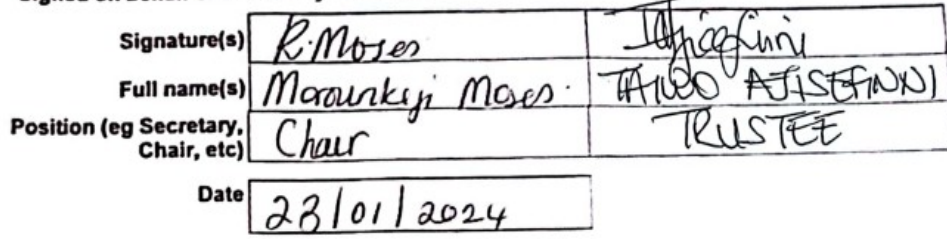 Signature(s) R. Moses
Full name(s) Morounkeji Moses. TAIWO AJISEFINNI
Position (eg Secretary, Chair TRUSTEE
Chair, etc)
Date 23/01/2024